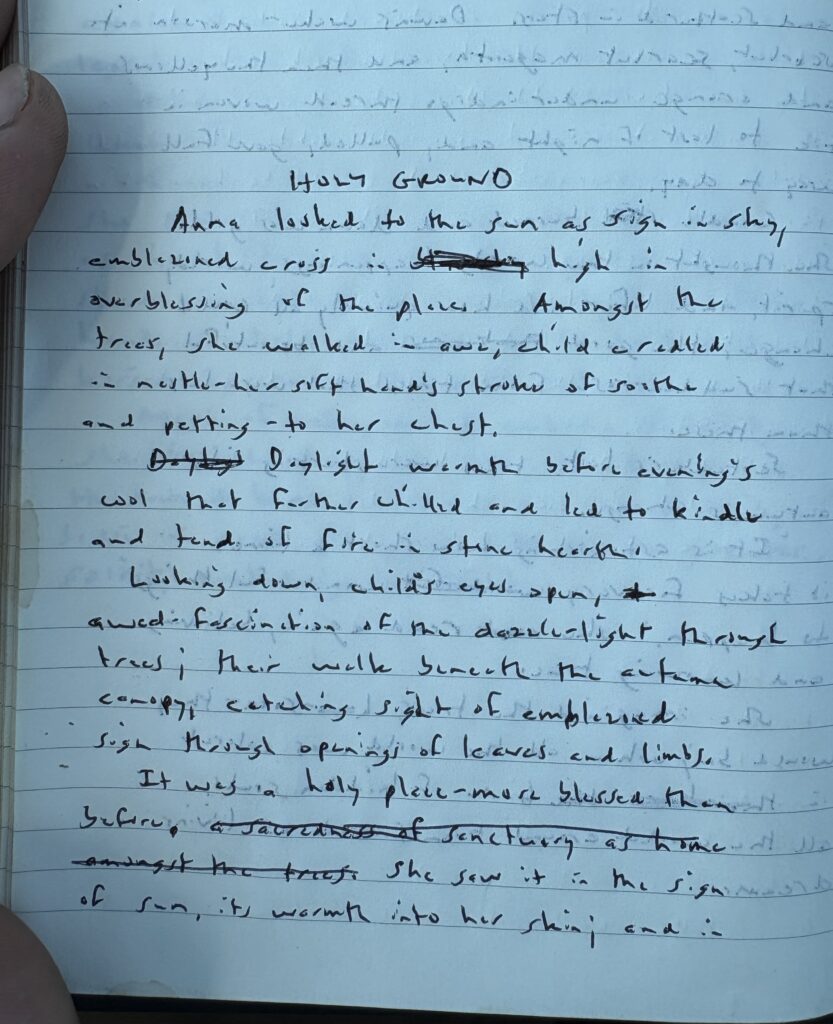 HOLY GROUND
Anna looked to the sun as sign in sky,
emblazoned cross in high in
overblessing of the place. Amongst the
trees, she walked in awe, child cradled
in nestle-her soft hand's stroke of soothe
and petting-to her chest.
Daylight Daylight warmth before evening's
cool that further chilled and led to kindle
and tend of fire in stone hearth.
Looking down, child's eyes open,
awed-fascination of the dazzle-light through
trees; their walk beneath the autumn
canopy, catching sight of emblazoned
sign through openings of leaves and limbs.
It was a holy place-more blessed than
before, a sacredness of sanctuary as home
amongst the trees. She saw it in the sign
of sun, its warmth into her skin; and in